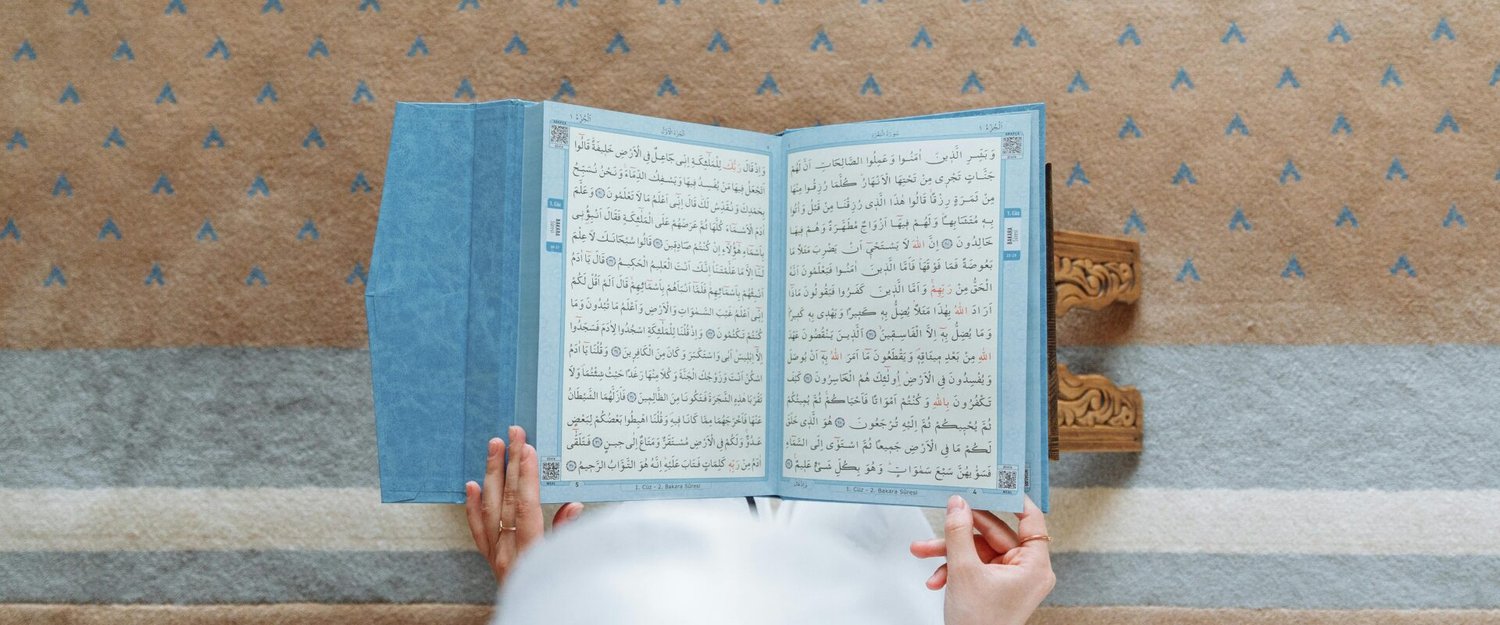 اَلْجُزْءُ ١
سُورَةُ الْبَقَرَةِ
وَبَشِّرِ الَّذ۪ينَ اٰمَنُوا وَعَمِلُوا الصَّالِحَاتِ اَنَّ لَهُمْ
جَنَّاتٍ تَجْر۪ي مِنْ تَحْتِهَا الْاَنْهَارُ كُلَّمَا رُزِقُوا مِنْهَا
مِنْ ثَمَرَةٍ رِزْقًا قَالُوا هٰذَا الَّذ۪ي رُزِقْنَا مِنْ قَبْلُ وَاُتُوا
بِه۪ مُتَشَابِهًا وَلَهُمْ ف۪يهَٓا اَزْوَاجٌ مُطَهَّرَةٌ وَهُمْ ف۪يهَا
خَالِدُونَ اِنَّ اللّٰهَ لَا يَسْتَحْي۪ٓ اَنْ يَضْرِبَ مَثَلًا مَا
بَعُوضَةً فَمَا فَوْقَهَا فَاَمَّا الَّذ۪ينَ اٰمَنُوا فَيَعْلَمُونَ اَنَّهُ
الْحَقُّ مِنْ رَبِّهِمْ وَاَمَّا الَّذ۪ينَ كَفَرُوا فَيَقُولُونَ مَاذَٓا
اَرَادَ اللّٰهُ بِهٰذَا مَثَلًا يُضِلُّ بِه۪ كَث۪يرًا وَيَهْد۪ي بِه۪ كَث۪يرًا
وَمَا يُضِلُّ بِه۪ٓ اِلَّا الْفَاسِق۪ينَ اَلَّذ۪ينَ يَنْقُضُونَ عَهْدَ
اللّٰهِ مِنْ بَعْدِ م۪يثَاقِه۪ وَيَقْطَعُونَ مَٓا اَمَرَ اللّٰهُ بِه۪ٓ اَنْ يُوصَلَ
وَيُفْسِدُونَ فِي الْاَرْضِ اُولٰٓئِكَ هُمُ الْخَاسِرُونَ كَيْفَ
تَكْفُرُونَ بِاللّٰهِ وَكُنْتُمْ اَمْوَاتًا فَاَحْيَاكُمْ ثُمَّ يُم۪يتُكُمْ
ثُمَّ يُحْي۪يكُمْ ثُمَّ اِلَيْهِ تُرْجَعُونَ هُوَ الَّذ۪ي خَلَقَ
لَكُمْ مَا فِي الْاَرْضِ جَم۪يعًا ثُمَّ اسْتَوٰٓى اِلَى السَّمَٓاءِ
فَسَوّٰيهُنَّ سَبْعَ سَمٰوَاتٍ وَهُوَ بِكُلِّ شَيْءٍ عَل۪يمٌ
1. Cüz
BAKARA
1. Cüz - 2. Bakara Sûresi
4
اَلْجُزْءُ ١
اَلْجُزْءُ الْاَوَّلُ
وَاِذْ قَالَ رَبُّكَ لِلْمَلٰٓئِكَةِ اِنّ۪ي جَاعِلٌ فِي الْاَرْضِ خَل۪يفَةً قَالُٓوا
اَتَجْعَلُ ف۪يهَا مَنْ يُفْسِدُ ف۪يهَا وَيَسْفِكُ الدِّمَٓاءَ وَنَحْنُ نُسَبِّحُ
بِحَمْدِكَ وَنُقَدِّسُ لَكَ قَالَ اِنّ۪ٓي اَعْلَمُ مَا لَا تَعْلَمُونَ وَعَلَّمَ
اٰدَمَ الْاَسْمَٓاءَ كُلَّهَا ثُمَّ عَرَضَهُمْ عَلَى الْمَلٰٓئِكَةِ فَقَالَ اَنْبِؤُ۫ن۪ي
بِاَسْمَٓاءِ هٰٓؤُ۬لَٓاءِ اِنْ كُنْتُمْ صَادِق۪ينَ قَالُوا سُبْحَانَكَ لَا عِلْمَ
لَنَٓا اِلَّا مَا عَلَّمْتَنَا اِنَّكَ اَنْتَ الْعَل۪يمُ الْحَك۪يمُ قَالَ يَٓا اٰدَمُ
اَنْبِئْهُمْ بِاَسْمَٓائِهِمْ فَلَمَّٓا اَنْبَاَهُمْ بِاَسْمَٓائِهِمْ قَالَ اَلَمْ اَقُلْ لَكُمْ
اِنّ۪ٓي اَعْلَمُ غَيْبَ السَّمٰوَاتِ وَالْاَرْضِ وَاَعْلَمُ مَا تُبْدُونَ وَمَا
كُنْتُمْ تَكْتُمُونَ وَاِذْ قُلْنَا لِلْمَلٰٓئِكَةِ اسْجُدُوا لِاٰدَمَ فَسَجَدُٓوا
اِلَّٓا اِبْل۪يسَ اَبٰى وَاسْتَكْبَرَ وَكَانَ مِنَ الْكَافِر۪ينَ وَقُلْنَا يَٓا اٰدَمُ
اسْكُنْ اَنْتَ وَزَوْجُكَ الْجَنَّةَ وَكُلَا مِنْهَا رَغَدًا حَيْثُ شِئْتُمَا وَلَا
تَقْرَبَا هٰذِهِ الشَّجَرَةَ فَتَكُونَا مِنَ الظَّالِم۪ينَ فَاَزَلَّهُمَا الشَّيْطَانُ
عَنْهَا فَاَخْرَجَهُمَا مِمَّا كَانَا ف۪يهِ وَقُلْنَا اهْبِطُوا بَعْضُكُمْ لِبَعْضٍ
عَدُوٌّ وَلَكُمْ فِي الْاَرْضِ مُسْتَقَرٌّ وَمَتَاعٌ اِلٰى ح۪ينٍ فَتَلَقّٰٓى
اٰدَمُ مِنْ رَبِّه۪ كَلِمَاتٍ فَتَابَ عَلَيْهِ اِنَّهُ هُوَ التَّوَّابُ الرَّح۪يمُ
1. Cüz
BAKARA
5
1. Cüz - 2. Bakara Sûresi